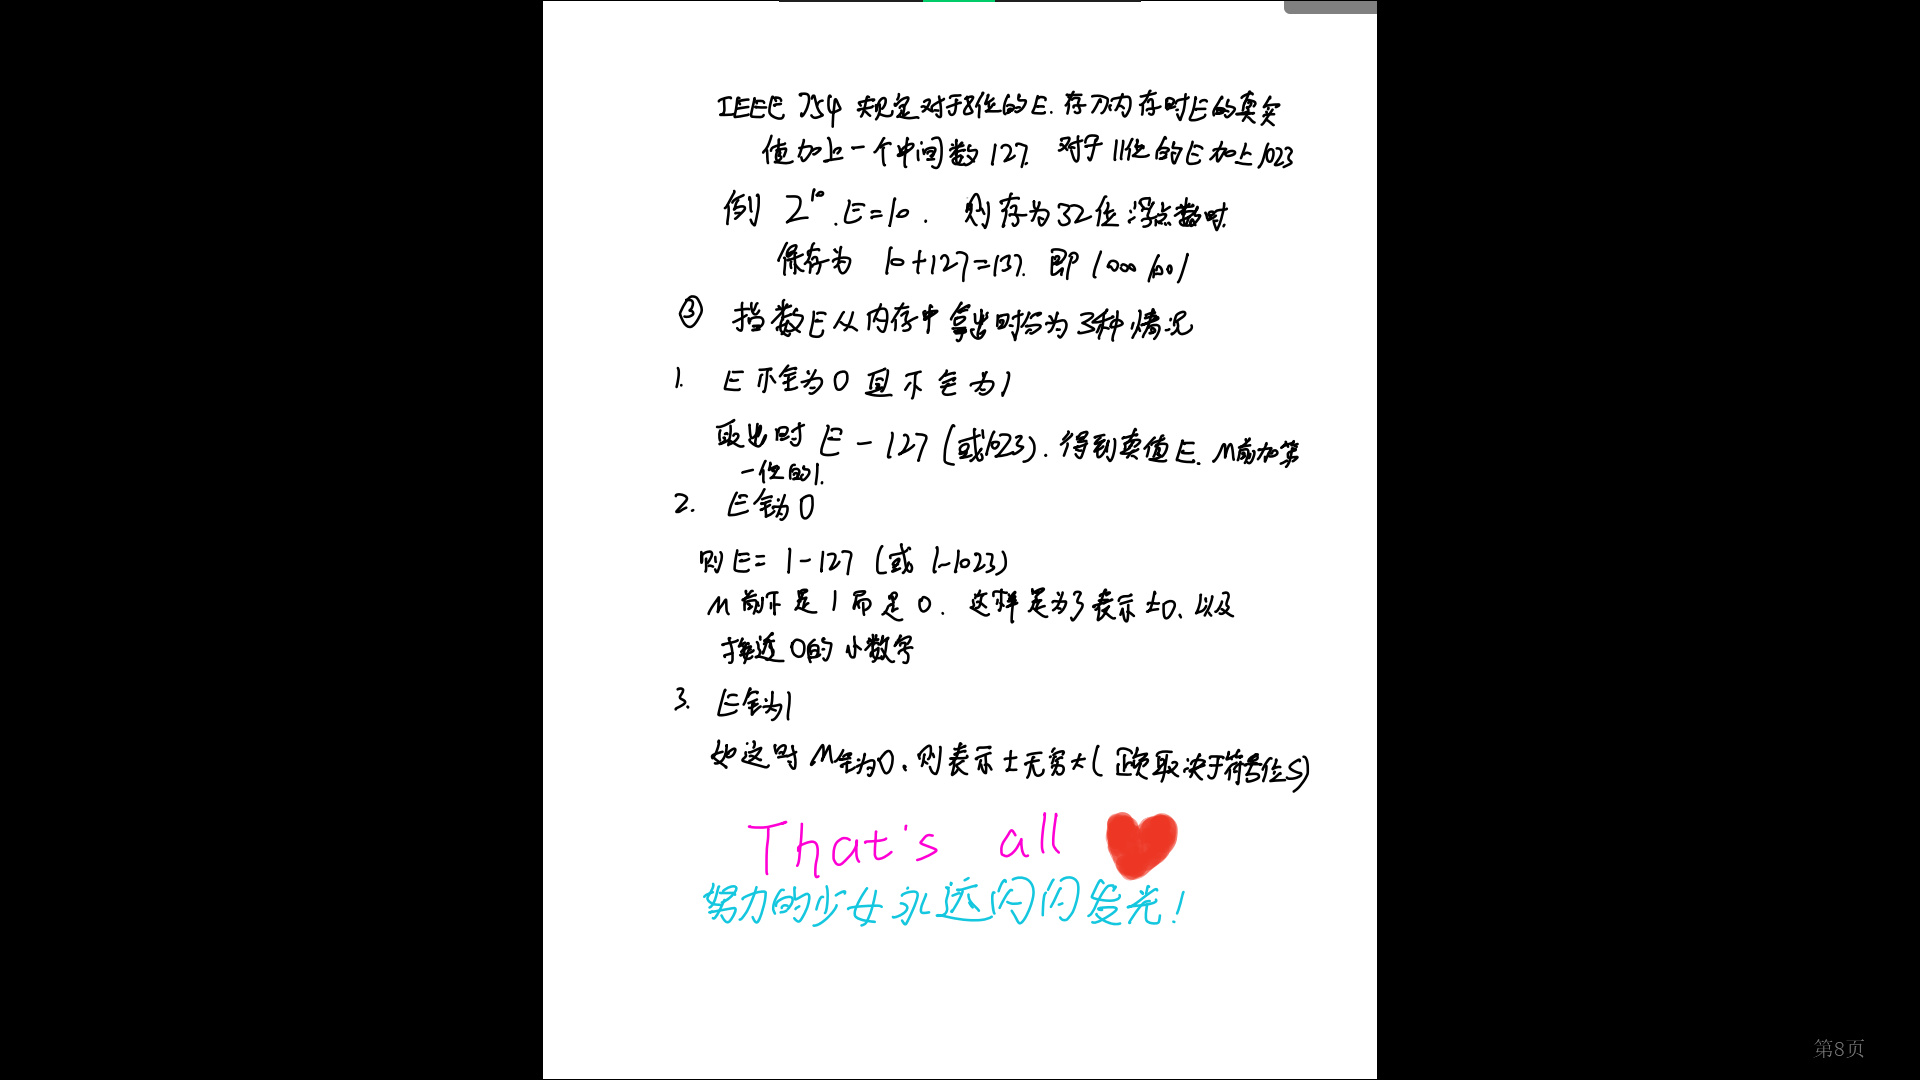 IEEE 754 规定对于8位的E.存入内存时E的真实
值加上一个中间数127. 对于11位的E加上1023
例 2^10.E=10. 则存为32位浮点数时.
保存为 10+127=137. 即 1000 1001
③ 指数E从内存中拿出时分为3种情况
1. E不全为0且不全为1
取出时 E-127(或1023).得到真值E.M前加第
一位的1.
2. E全为0
则E= 1-127 (或 1-1023)
M前不是1而是0. 这样是为了表示±0、以及
接近0的小数字
3. E全为1
如这时M全为0、则表示±无穷大(正负取决于符号位S)
That's all
努力的少女永远闪闪发光!
第8页